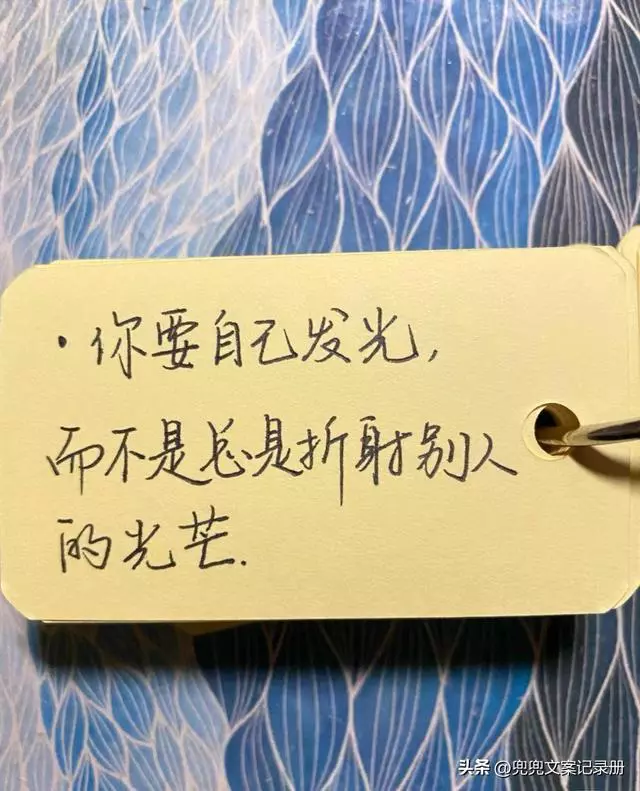 ·你要自己发光,
而不是总是折射别人
的光芒.
头条 @兜兜文案记录册